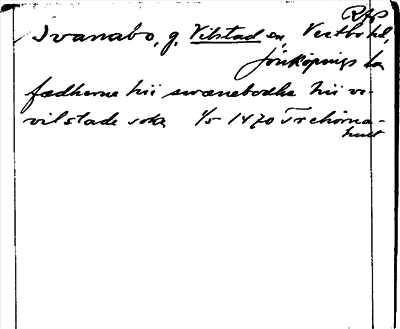 RAP
Svanabo, g. Vilstad sn, Västbo hd,
Jönköpings län
fædherne hii swænebodha hii vi-
vilstade sokn 1/5 1470 Trehörna-
hult